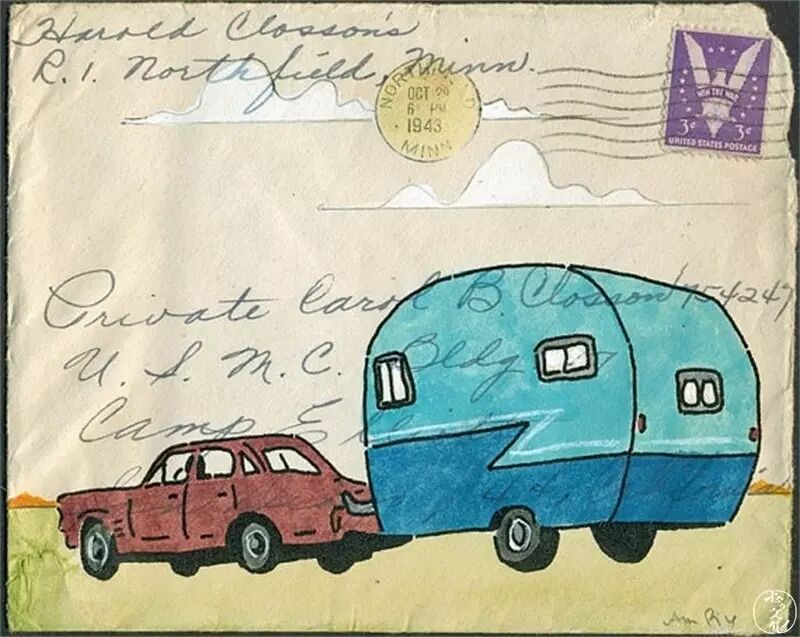 Harold Closson's
R. 1. Northfield, Minn.
OCT 29
6 PM
1943
MINN
WIN THE WAR
3¢ 3¢
UNITED STATES POSTAGE
Private Carol B Closson 754247
U. S. M. C. Bldg
Camp